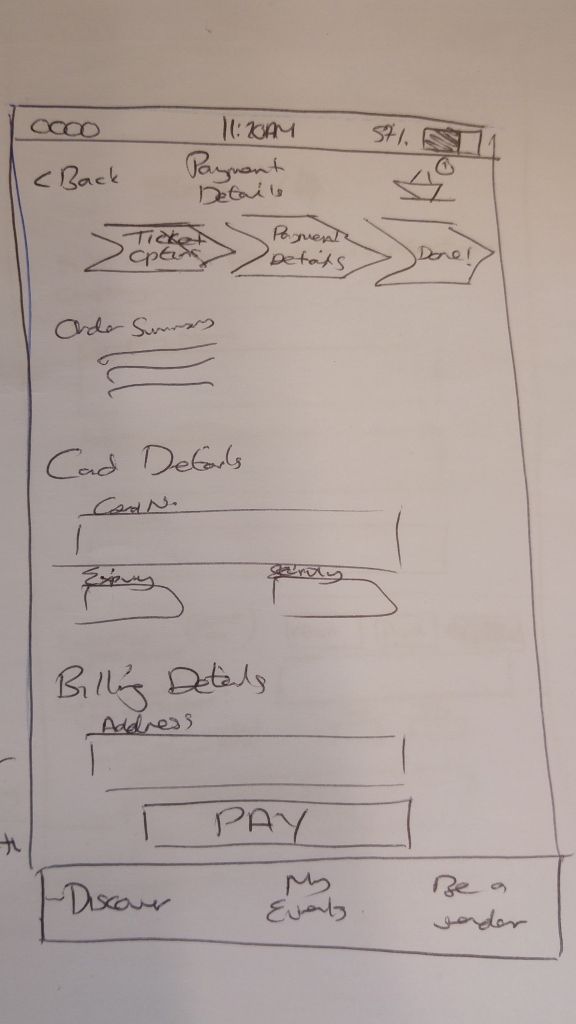 OOOO 11:20AM 57%
< Back Payment
Details
1
Ticket
Options
Payment
Details
Done!
Order Summary
Card Details
Card No.
Expiry Security
Billing Details
Address
PAY
Discover My
Events Be a
vendor